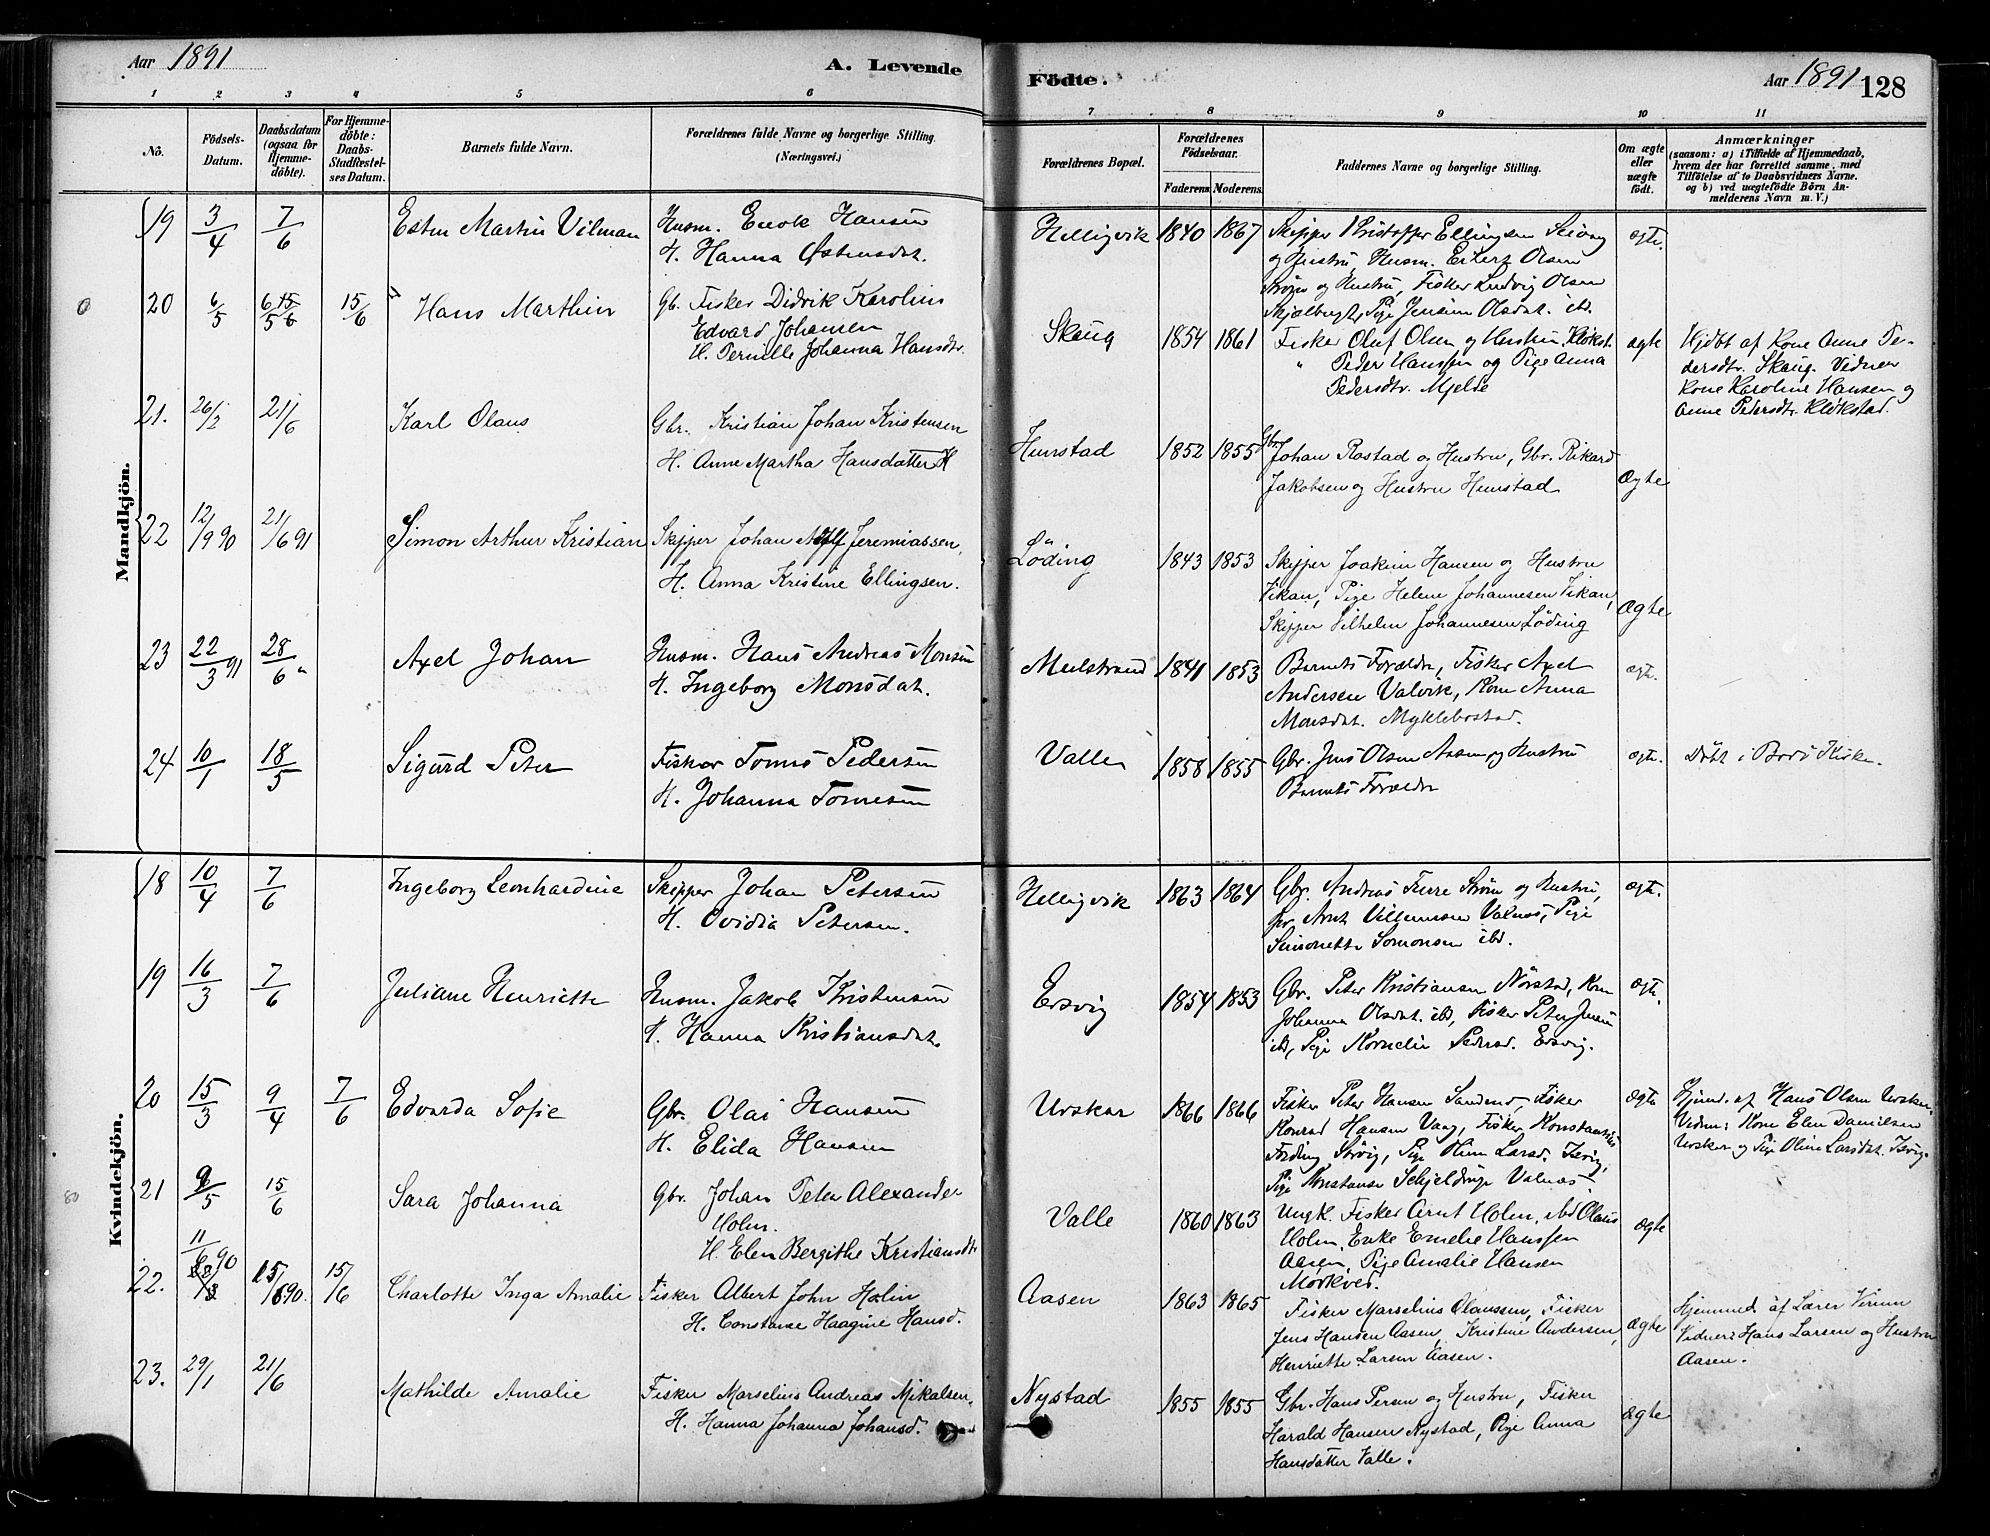 Aar 1891
A. Levende
Födte.
Aar 1891
128
1 2 3 4 5 6
7 8 9 10 11
No.
Födsels-Datum.
Daabsdatum (ogsaa for Hjemme-döbte).
For Hjemme-döbte: Daabs-Stadfæstel-ses Datum.
Barnets fulde Navn.
Forældrenes fulde Navne og borgerlige Stilling.
(Næringsvei.)
Forældrenes Bopæl.
Forældrenes Födselsaar.
Faderens. Moderens.
Faddernes Navne og borgerlige Stilling.
Om ægte eller uægte födt.
Anmærkninger
(saasom: a) i Tilfælde af Hjemmedaab,
hvem der har forrettet samme, med
Tilföielse af to Daabsvidners Navne.
og b) ved uægtefödte Börn An-
melderens Navn m. V.)
Mandkjön.
19 3/4 7/6 Martin Vilman Husm. Enok Hansen
H. Hanna Østensdat.
Helligvik 1840 1867 Skipper Kristoffer Ellingsen
og Hustru, Husm. Olsen
Strøm og Hustru, Fisker Ludvig Olsen
Pige Jensine Olsdat. ibd.
ægte.
20 6/5 6/5 15/6 15/6 Hans Marthin Gb. Fisker Didrik Karolius
Edvard Johansen
H. Pernille Johanna Hansdtr.
Skaug 1854 1861 Fisker Oluf Olsen og Hustru Kløkst.
" Peder Hanssen og Pige Anna
Pedersdtr. Mjelde
ægte
Hjdbt af Kone Anne Pe-
dersdtr. Skaug. Vidner
Kone Karoline Hansen og
Anne Pedersdtr. Kløkstad.
21. 26/2 21/6 Karl Olaus Gbr. Kristian Johan Kristensen
H. Anne Martha Hansdatter H
Hunstad 1852 1855 Gbr. Johan Rostad og Hustru, Gbr. Rikard
Jakobsen og Hustru Hunstad
Ægte
22 12/9 90 21/6 91 Simon Arthur Kristian Skipper Johan Adolf Jeremiassen,
H. Anna Kristine Ellingsen.
Löding 1843 1853 Skipper Joakim Hansen og Hustru
Vikan, Pige Helene Johannesen Vikan,
Skipper Vilhelm Johannesen Löding
Ægte
23 22/3 91 28/6 " Axel Johan Husm. Hans Andreas Monsen
H. Ingeborg Monsdat.
1841 1853 Barnets Forældre, Fisker Axel
Andersen Valvik, Kone Anna
Monsdat. Myklebostad.
ægte.
24 10/1 18/5 Sigurd Peter Fisker Tomes Pedersen
H. Johanna Tomesen
Valle 1858 1855 Gbr. Jens Olsen Aasen og Hustru
Barnets Forældre
ægte.
Döbt i Bodö Kirke.
Kvindekjön.
18 10/4 7/6 Ingeborg Leonhardine Skipper Johan Petersen
H. Ovidia Petersen.
Helligvik 1863 1864 Gbr. Andreas Furre Strøm og Hustru,
Arnt Villumsen Valnes, Pige
Simonette Somonsen ibd.
ægte.
19 16/3 7/6 Juliane Henriette Husm. Jakob Kristensen
H. Hanna Kristiansdat.
Ersvig 1854 1853 Gbr. Peter Kristiansen Nörstad, Kone
Johanna Olsdat. ibd, Fisker Peter Jensen
ibd, Pige Kornelie Pedersd. Ersvig.
ægte.
20 15/3 9/4 7/6 Edvarda Sofie Gbr. Olai Hansen
H. Elida Hansen
Urskar 1866 1866 Fisker Peter Hansen Fisker
Konrad Hansen Vaag, Fisker Konstantin
Sörvig, Pige Larsd.
Pige Konstanse Schjeldrup Valnes
ægte
Hjemd. af Hans Olsen Urskar.
Vidner: Kone Elen Danielsen
Urskar og Pige Oline Larsdat.
21 9/5 15/6 Sara Johanna Gbr. Johan Peter Alexander
Holm.
H. Elen Bergithe Kristiansdtr.
Valle 1860 1863 Ungk. Fisker Arnt Holm, ibd Olaus
Holm, Enke Emelie Hanssen
Aasen, Pige Amalie Hansen
Mörkved.
ægte
22. 11/6 90 15/6 90. 15/6 Charlotte Inga Amalie Fisker Albert John Holm
H. Constanse Haagine Hansd.
Aasen 1863 1865 Fisker Marselius Olaussen, Fisker
Jens Hansen Aasen, Kristine Andersen,
Henriette Larsen Aasen.
Ægte
Hjemmed. af Lærer
Vidner: Hans Larsen og Hustru
Aasen.
23. 29/1 21/6 Mathilde Amalie Fisker Marselius Andreas Mikalsen,
H. Hanna Johanna Johansd.
Nystad 1855 1855 Gbr. Hans Persen og Hustru, Fisker
Harald Hansen Nystad, Pige Anna
Hansdatter Valle.
Ægte